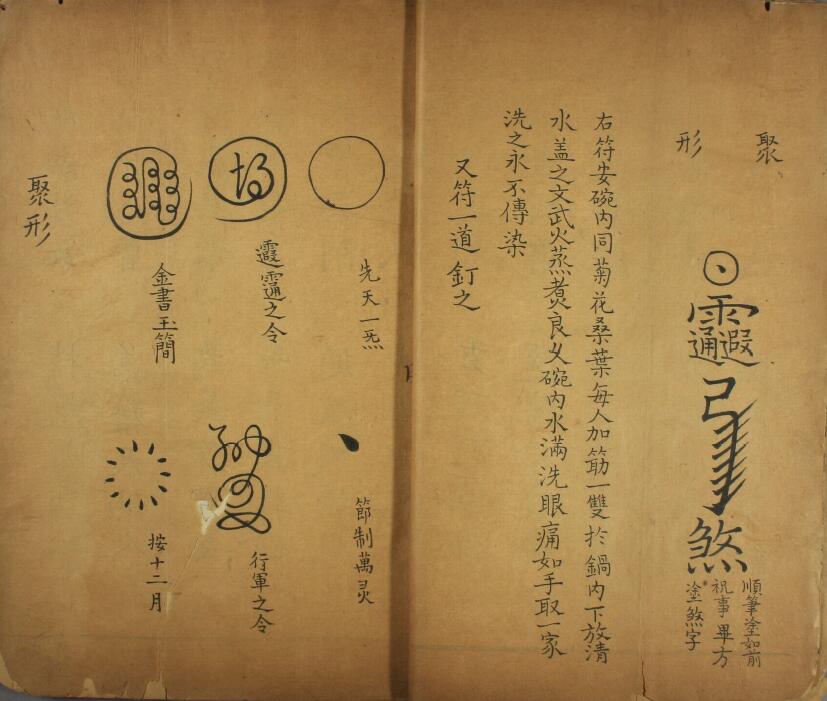 聚
形
煞
順筆塗如前
祝事畢方
塗煞字
右符安碗内同菊花桑葉每人加筯一雙於鍋内下放清
水盖之文武火蒸煑良乆碗内水滿洗眼痛如手取一家
洗之永不傳染
又符一道釘之
先天一炁
節制萬灵
之令
行軍之令
金書玉簡
按十二月
聚形